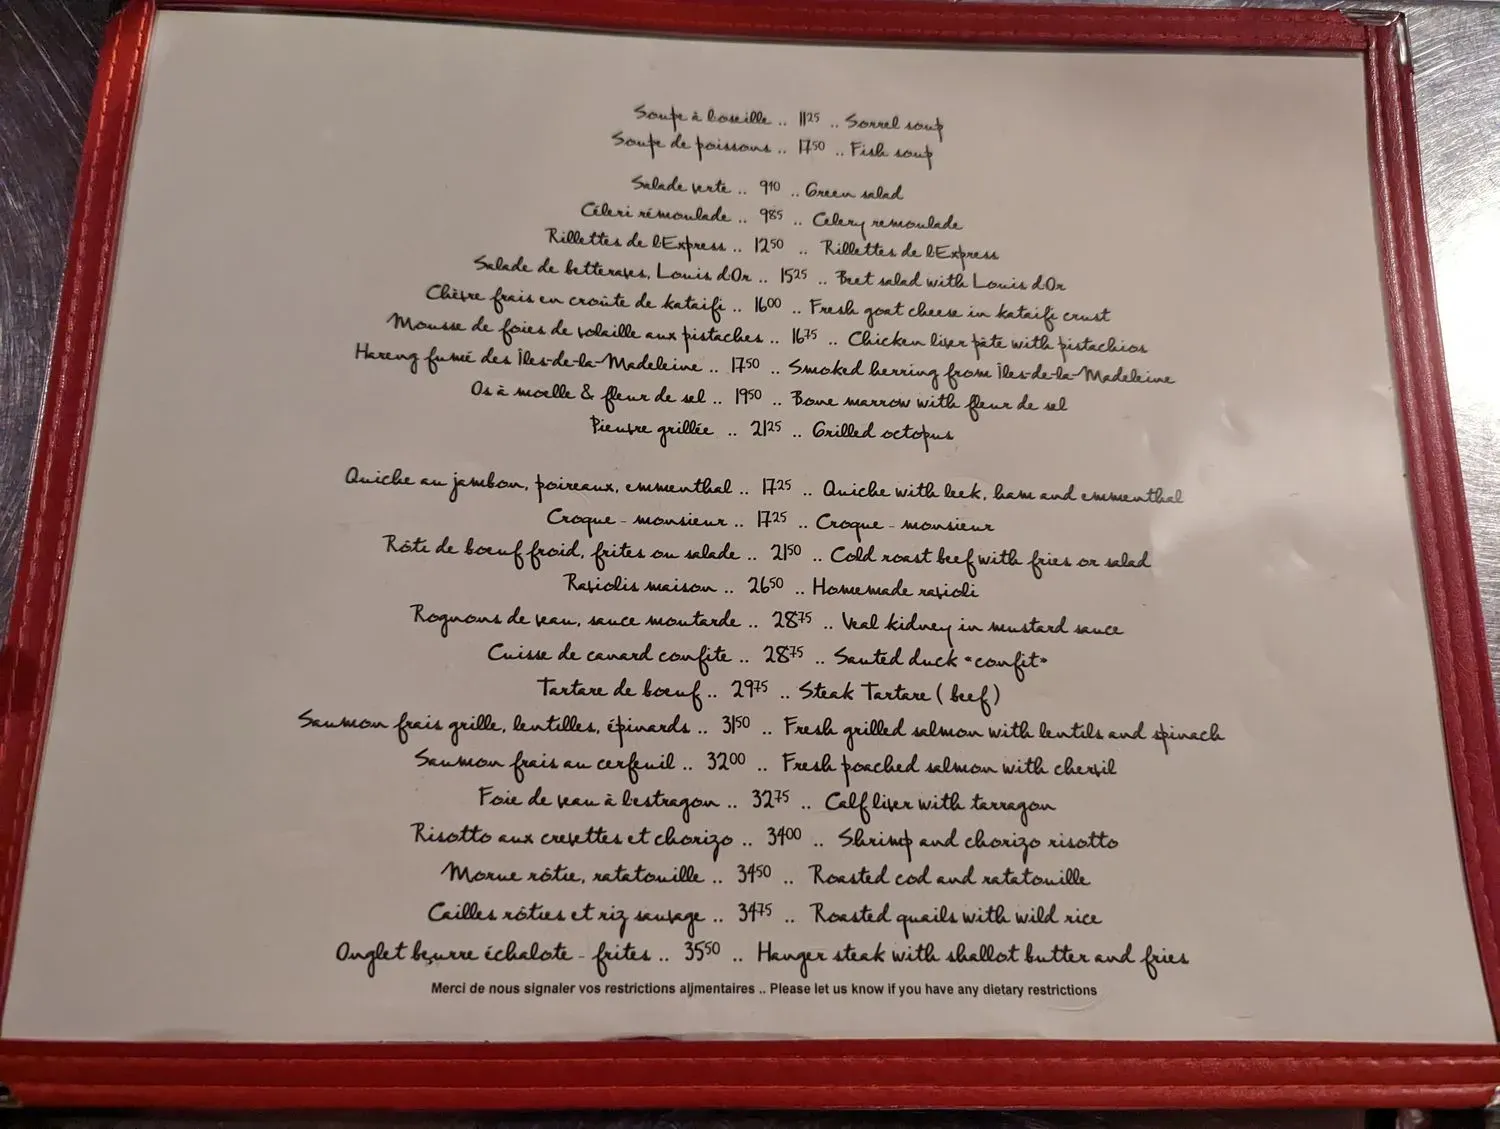 Soupe à l'oseille .. 11²⁵ .. Sorrel soup
Soupe de poissons .. 17⁵⁰ .. Fish soup
Salade verte .. 9¹⁰ .. Green salad
Céleri rémoulade .. 9⁸⁵ .. Celery remoulade
Rillettes de l'Express .. 12⁵⁰ .. Rillettes de l'Express
Salade de betteraves, Louis d'Or .. 15²⁵ .. Beet salad with Louis d'Or
Chèvre frais en croûte de kataifi .. 16⁰⁰ .. Fresh goat cheese in kataifi crust
Mousse de foies de volaille aux pistaches .. 16⁷⁵ .. Chicken liver pâté with pistachios
Hareng fumé des Îles-de-la-Madeleine .. 17⁵⁰ .. Smoked herring from Îles-de-la-Madeleine
Os à moelle & fleur de sel .. 19⁵⁰ .. Bone marrow with fleur de sel
Pieuvre grillée .. 21²⁵ .. Grilled octopus
Quiche au jambon, poireaux, emmenthal .. 17²⁵ .. Quiche with leek, ham and emmenthal
Croque - monsieur .. 17²⁵ .. Croque - monsieur
Rôti de boeuf froid, frites ou salade .. 21⁵⁰ .. Cold roast beef with fries or salad
Raviolis maison .. 26⁵⁰ .. Homemade ravioli
Rognons de veau, sauce moutarde .. 28⁷⁵ .. Veal kidney in mustard sauce
Cuisse de canard confite .. 28⁷⁵ .. Sauted duck "confit"
Tartare de boeuf .. 29⁷⁵ .. Steak Tartare ( beef)
Saumon frais grille, lentilles, épinards .. 31⁵⁰ .. Fresh grilled salmon with lentils and spinach
Saumon frais au cerfeuil .. 32⁰⁰ .. Fresh poached salmon with chervil
Foie de veau à l'estragon .. 32⁷⁵ .. Calf liver with tarragon
Risotto aux crevettes et chorizo .. 34⁰⁰ .. Shrimp and chorizo risotto
Morue rôtie, ratatouille .. 34⁵⁰ .. Roasted cod and ratatouille
Cailles rôties et riz sauvage .. 34⁷⁵ .. Roasted quails with wild rice
Onglet beurre échalote - frites .. 35⁵⁰ .. Hanger steak with shallot butter and fries
Merci de nous signaler vos restrictions aljmentaires .. Please let us know if you have any dietary restrictions